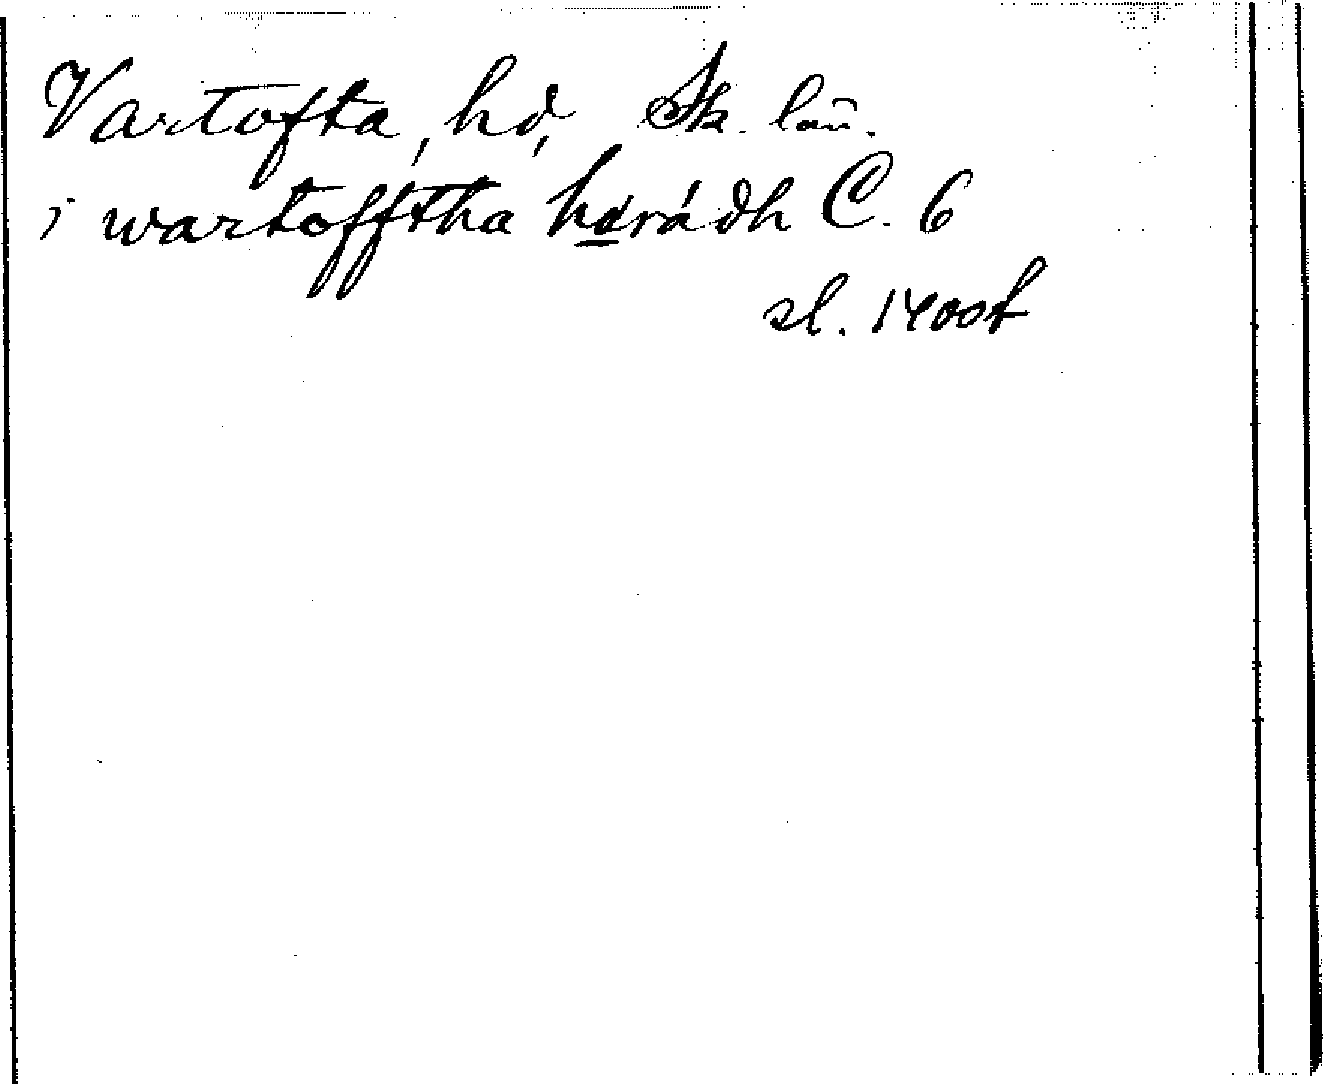 Vartofta, hd, Sk. län.
i wartofftha hærádh C. 6
sl. 1400t